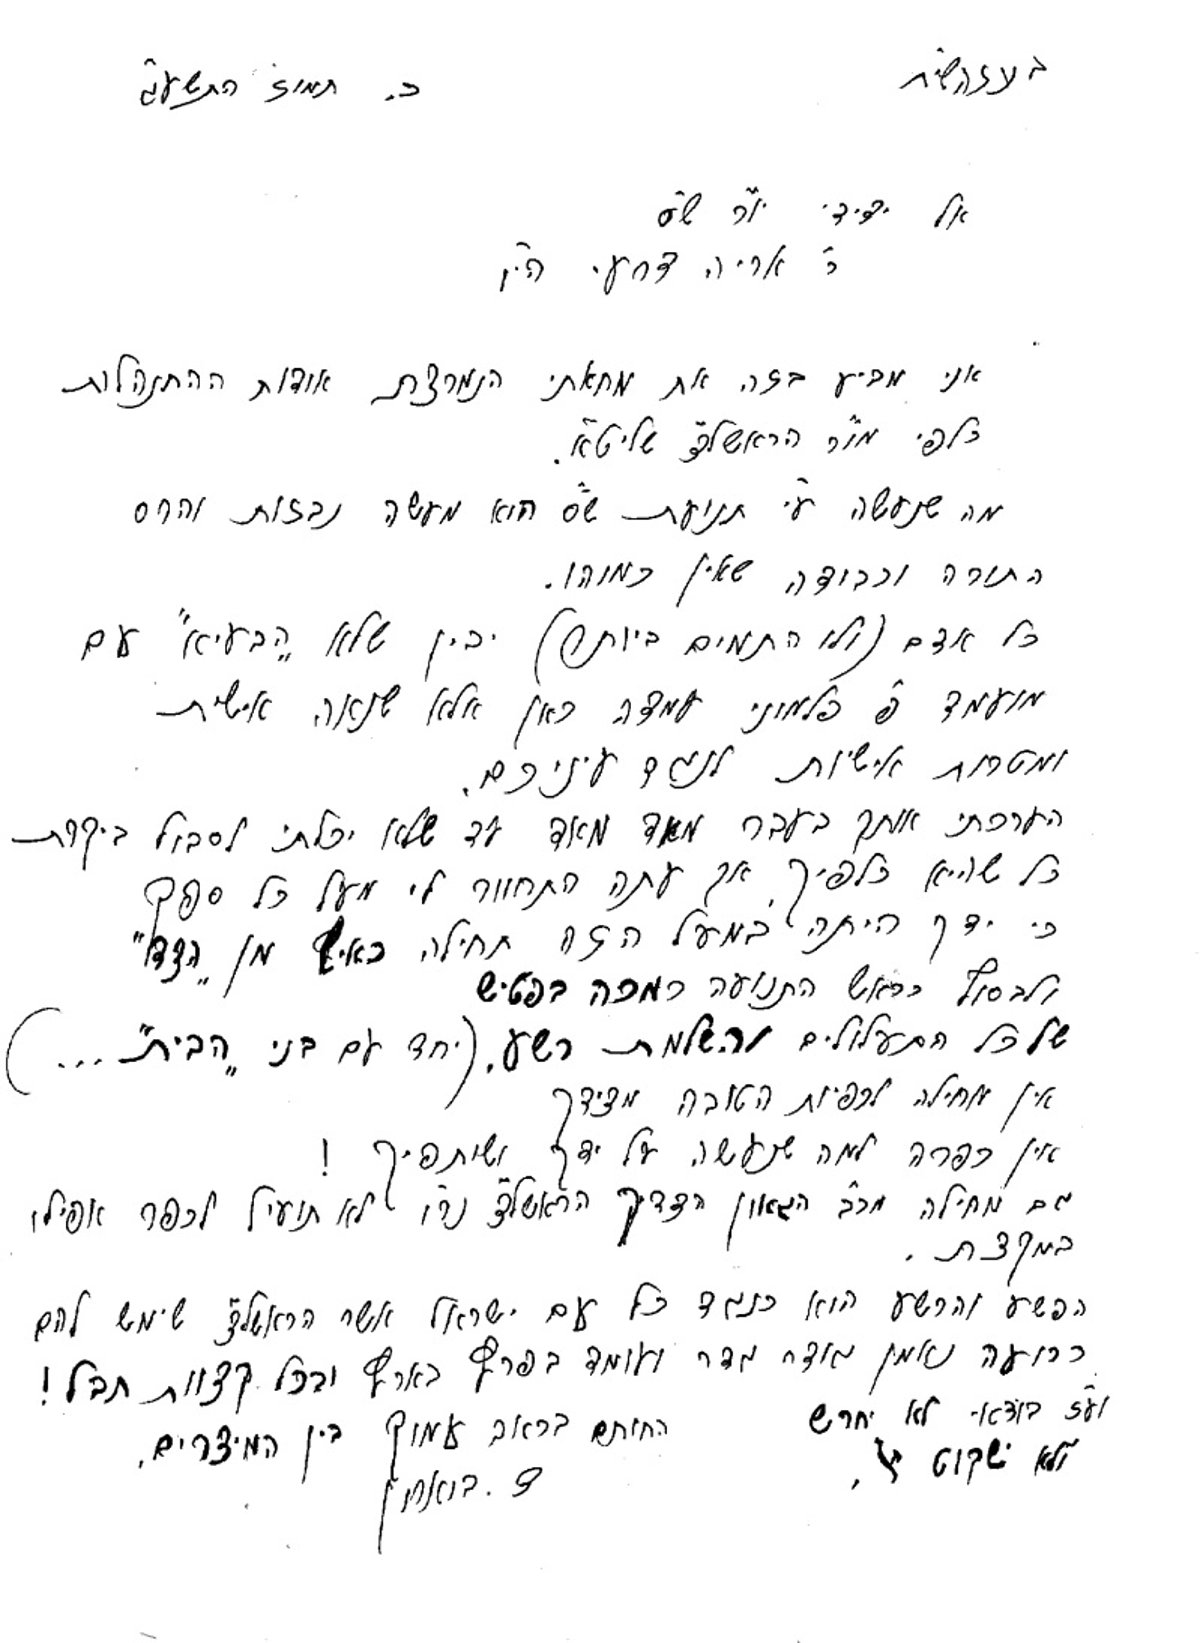 בעזהשי״ת
כ. תמוז התשע״ג
אל ידידי יו״ר ש״ס
ר׳ אריה דרעי הי״ו
אני מביע בזה את מחאתי הנמרצת אודות ההתנהלות
כלפי מו״ר הראשל״צ שליט״א.
מה שנעשה ע״י תנועת ש״ס הוא מעשה נבזות והרס
התורה וכבודה שאין כמוהו.
כל אדם (ולו התמים ביותר) יבין שלא "הבעיא" עם
מועמד פ׳ פלמוני עמדה כאן אלא שנאה אישית
ומטרות אישיות לנגד עיניכם.
הערכתי אותך בעבר מאד מאד עד שלא יכלתי לסבול ביקרת
כל שהיא כלפיך, אך עתה התחוור לי מעל כל ספק
כי ידך היתה במעל הזה תחילה כאילו מן "הצד"
ולבסוף כראש התנועה כמכה בפטיש
של כל התעלולים והשלמת רשע. (יחד עם בני "הבית" ...)
אין מחילה לכפיות הטובה מצידך
אין כפרה למה שנעשה על ידך ושותפיך !
גם מחילה מכ״ג הגאון הצדיק הראשל״צ נר״ו לא תועיל לכפר אפילו
במקצת .
הפשע והרשע הוא כנגד כל עם ישראל אשר הראשל״צ שימש להם
כרועה נאמן גודר גדר ועומד בפרץ בארץ ובכל קצוות תבל !
וע״ז בודאי לא יחרש
ולא ישקוט .
החותם בכאב עמוק בין המיצרים.
ד. בוארון